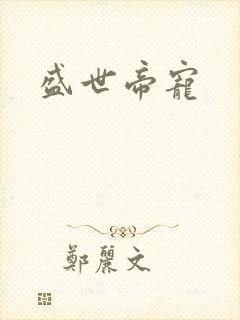 盛世帝寵
鄭麗文